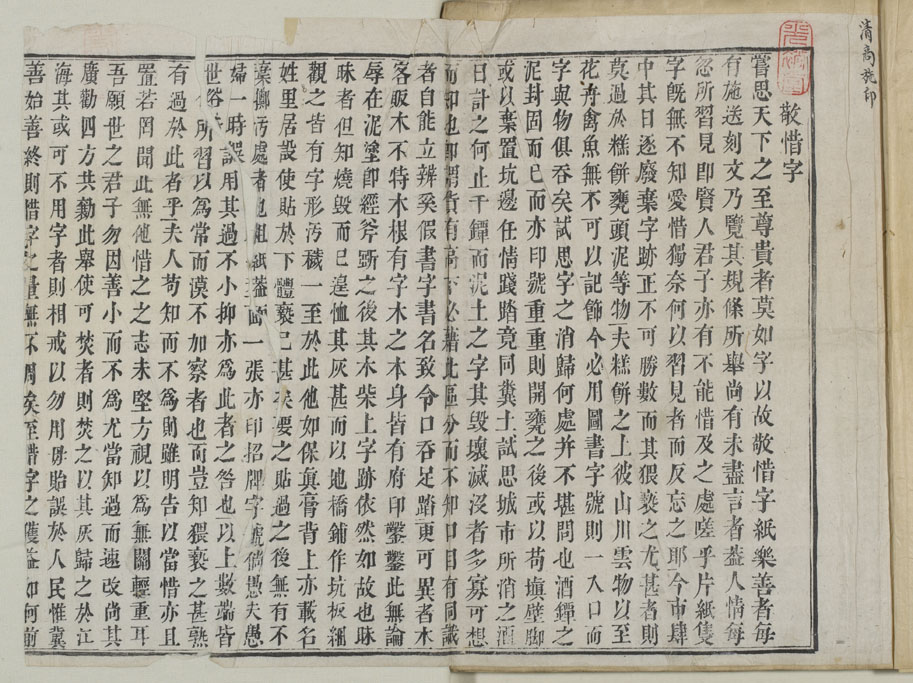 清高祝印
敬惜字
嘗思天下之至尊貴者莫如字以故敬惜字紙樂善者每
有施送刻文乃覽其規條所舉尚有未盡言者蓋人情每
忽所習見即賢人君子亦有不能惜及之處嗟乎片紙隻
字旣無不知愛惜獨奈何以習見者而反忘之耶今市肆
中其日逐廢棄字跡正不可勝數而其猥褻之尤甚者則
莫過於糕餅甕頭泥等物夫糕餅之上彼山川雲物以至
花卉禽魚無不可以記飾今必用圖書字號則一入口而
字與物俱吞矣試思字之消歸何處并不堪問也酒罈之
泥封固而已而亦印號重重則開甕之後或以苟塡壁脚
或以棄置坑邊任情踐踏竟同糞土試思城市所消之酒
日計之何止千罈而泥土之字其毀壞滅沒者多寡可想
而知也卽謂貨有高下必藉此區分而不知口目有同識
者自能立辨奚假書字書名致令口吞足踏更可異者木
客販木不特木根有字木之本身皆有府印鑿鑿此無論
辱在泥塗卽經斧斲之後其木柴上字跡依然如故也昧
昧者但知燒毀而已遑恤其灰甚而以地橋鋪作坑板溷
觀之皆有字形汚穢一至於此他如保眞膏背上亦載名
姓里居設使貼於下體褻已甚矣要之貼過之後無有不
棄擲汚處者也粗紙蓋面一張亦印招牌字號倘愚夫愚
婦一時誤用其過不小抑亦爲此者之咎也以上數端皆
世俗所習以爲常而漠不加察者也而豈知猥褻之甚熟
有過於此者乎夫人苟知而不爲則雖明告以當惜亦且
置若罔聞此無他惜之之志未堅方視以爲無關輕重耳
吾願世之君子勿因善小而不爲尤當知過而速改尙其
廣勸四方共勷此舉使可焚者則焚之以其灰歸之於江
海其或可不用字者則相戒以勿用毋貽誤於人民惟冀
善始善終則惜字之量無不周矣至惜字之獲益如何前